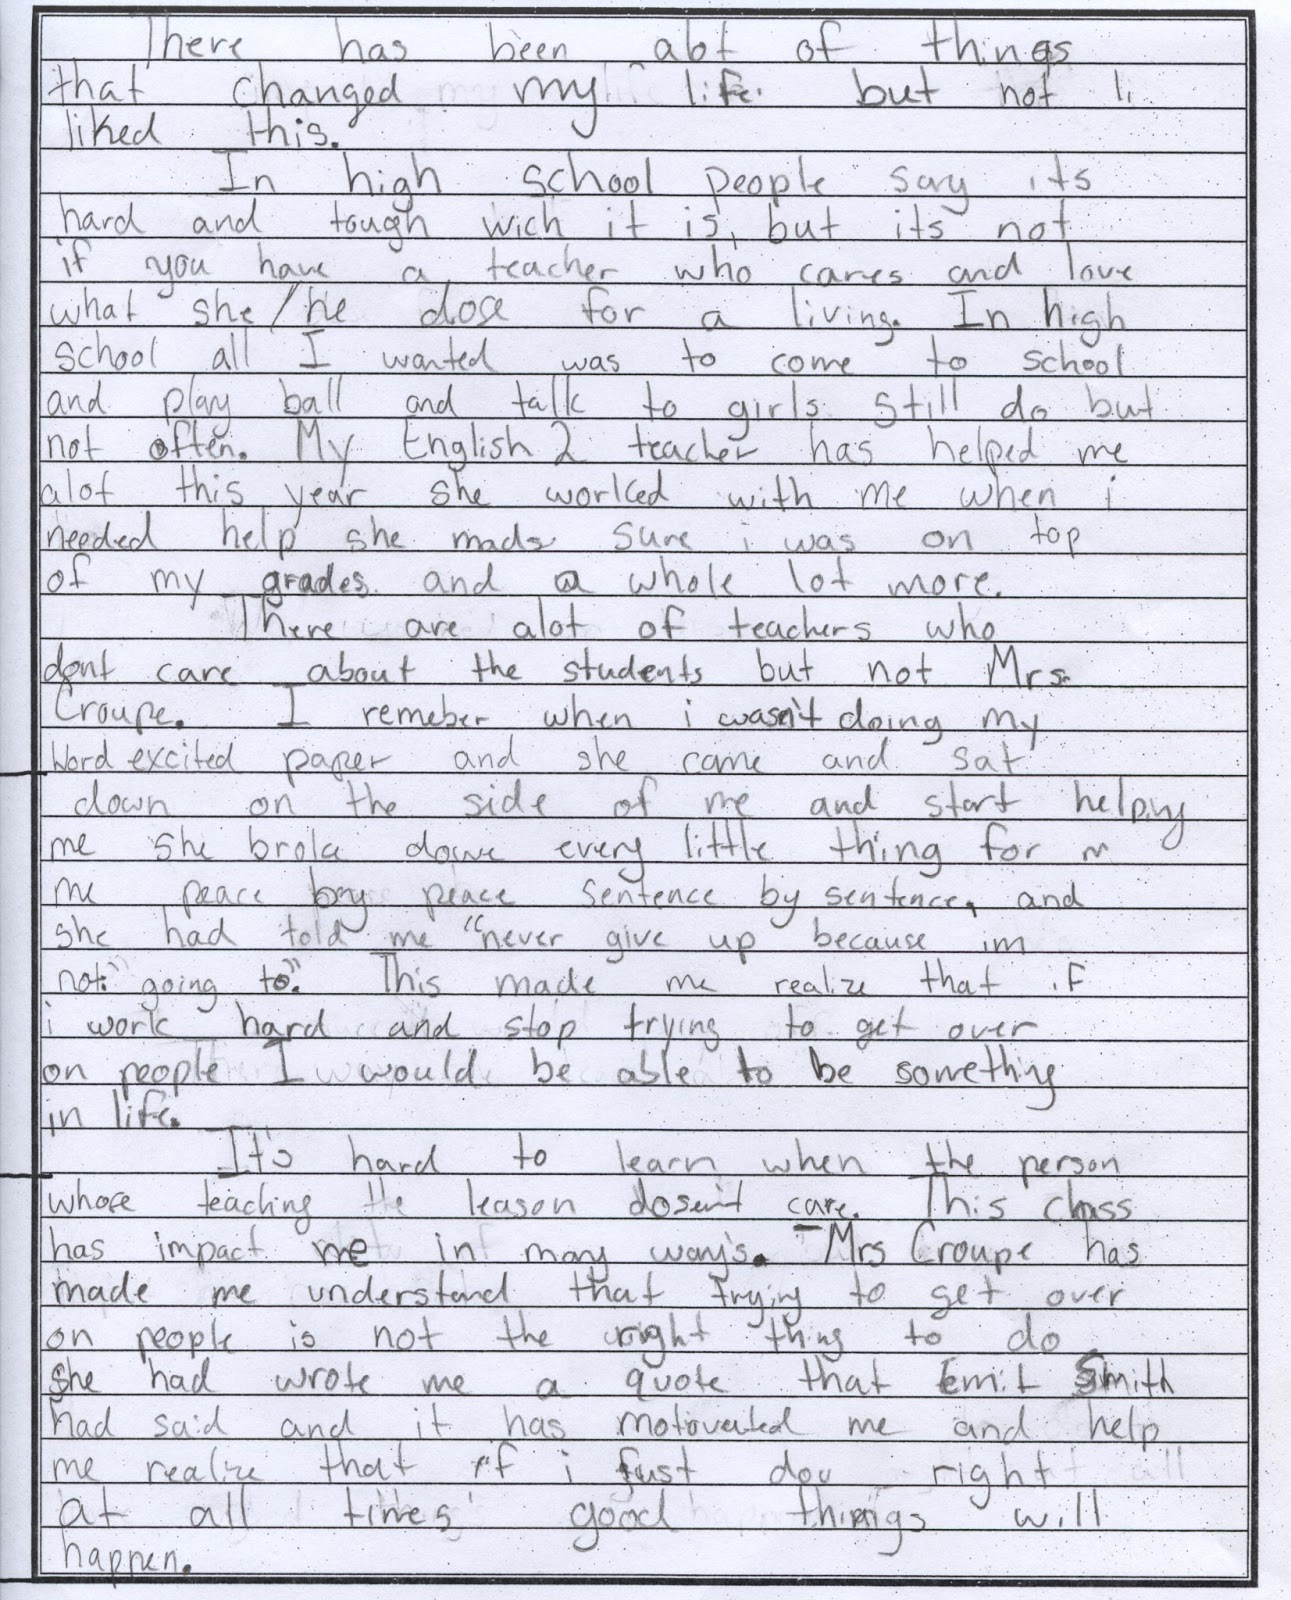 There has been alot of things
that changed my life. but not li
liked this.
In high school people say its
hard and tough wich it is, but its not
if you have a teacher who cares and love
what she/he dose for a living. In high
school all I wanted was to come to school
and play ball and talk to girls still do but
not often. My English 2 teacher has helped me
alot this year she worked with me when i
needed help she made sure i was on top
of my grades and a whole lot more.
There are alot of teachers who
dont care about the students but not Mrs.
Croupe. I remeber when i wasn't doing my
Word excited paper and she came and sat
down on the side of me and start helping
me she broke downe every little thing for m
me peace by peace sentence by sentence, and
she had told me "never give up because im
not" going to." This made me realize that if
i work hard and stop trying to get over
on people I would be able to be something
in life.
It's hard to learn when the person
whose teaching the leason dosen't care. This class
has impact me in many way's. Mrs Croupe has
made me understand that trying to get over
on people is not the right thing to do
she had wrote me a quote that Emit Smith
had said and it has motovated me and help
me realize that if i just dou right
at all times good things will
happen.